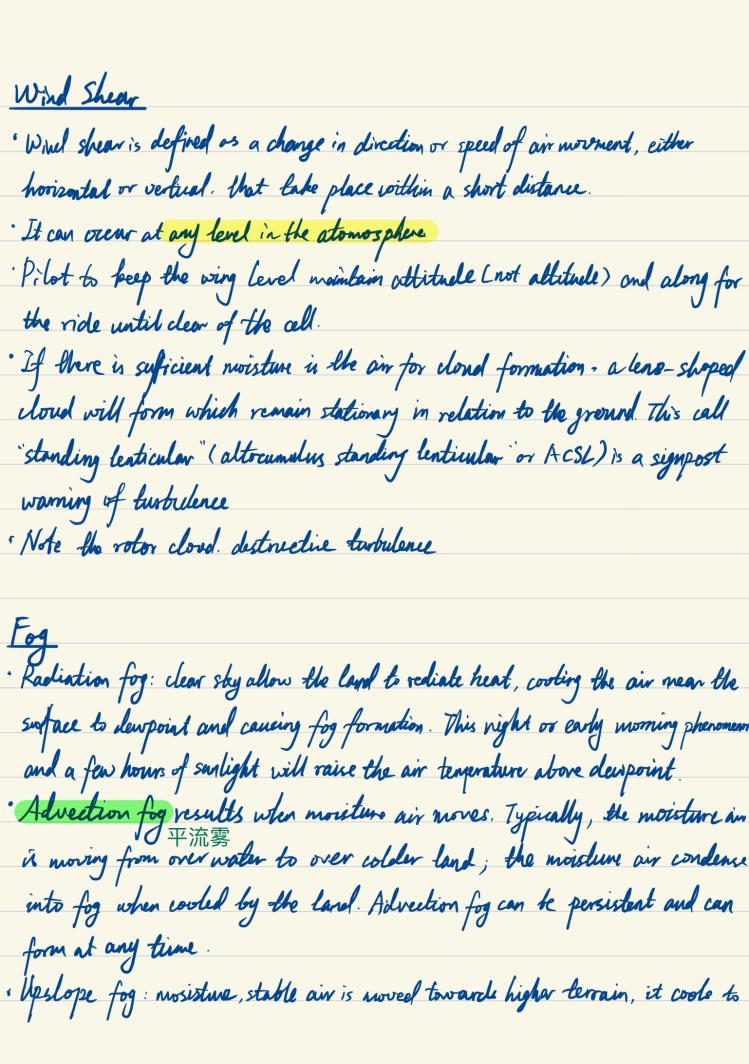 Wind Shear
· Wind shear is defined as a change in direction or speed of air movment, either
horizontal or vertical. that take place within a short distance.
· It can occur at any level in the atomosphere
· Pilot to keep the wing level maintain attitude (not altitude) and along for
the ride until clear of the cell.
· If there is sufficient moisture is the air for cloud formation. a lens-shaped
cloud will form which remain stationary in relation to the ground. This call
"standing lenticular" (altocumulus standing lenticular" or ACSL) is a signpost
warning of turbulence
· Note the rotor cloud. destructive turbulence
Fog
· Radiation fog: clear sky allow the land to rediate heat, cooling the air near the
surface to dewpoint and causing fog formation. This night or early morning phenomenon
and a few hours of sunlight will raise the air temperature above dewpoint.
· Advection fog results when moisture air moves. Typically, the moisture air
平流雾
is moving from over water to over colder land; the moisture air condense
into fog when cooled by the land. Advection fog can be persistent and can
form at any time.
· Upslope fog: mosisture, stable air is moved towards higher terrain, it cools to